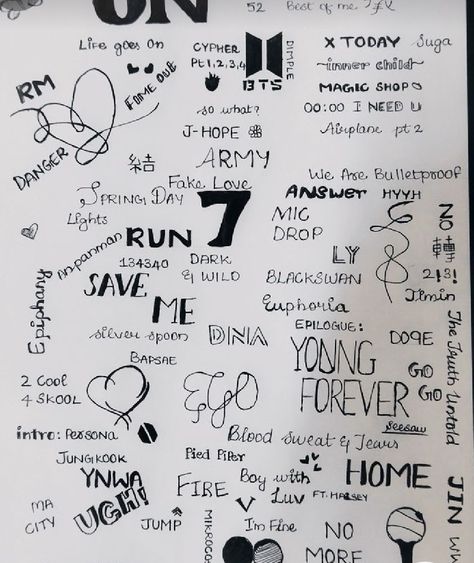 ON
52
Best of me
Life goes On
CYPHER
PT 1,2,3,4
BTS
DIMPLE
X TODAY
Suga
~inner child~
MAGIC SHOP
00:00 I NEED U
Airplane pt 2
RM
FAKE OUT
DANGER
so what?
J-HOPE
ARMY
結
We Are Bulletproof
Fake Love
ANSWER
HYYH
Spring Day
7
MIC
DROP
NO
Lights
An-panman
RUN
轉
134340
DARK
& WILD
LY
2!3!
Epiphany
SAVE
ME
BLACKSWAN
Jimin
Euphoria
silver spoon
DNA
EPILOGUE:
YOUNG
FOREVER
DOPE
The Truth Untold
BAPSAE
GO
GO
2 COOL
4 SKOOL
EGO
seesaw
intro: PERSONA
Blood Sweat & Tears
JUNGKOOK
Pied Piper
HOME
JIN
YNWA
FIRE
Boy with
Luv
FT. HALSEY
MA
CITY
UGH!
JUMP
MIKROCOS
V
I'm Fine
NO
MORE